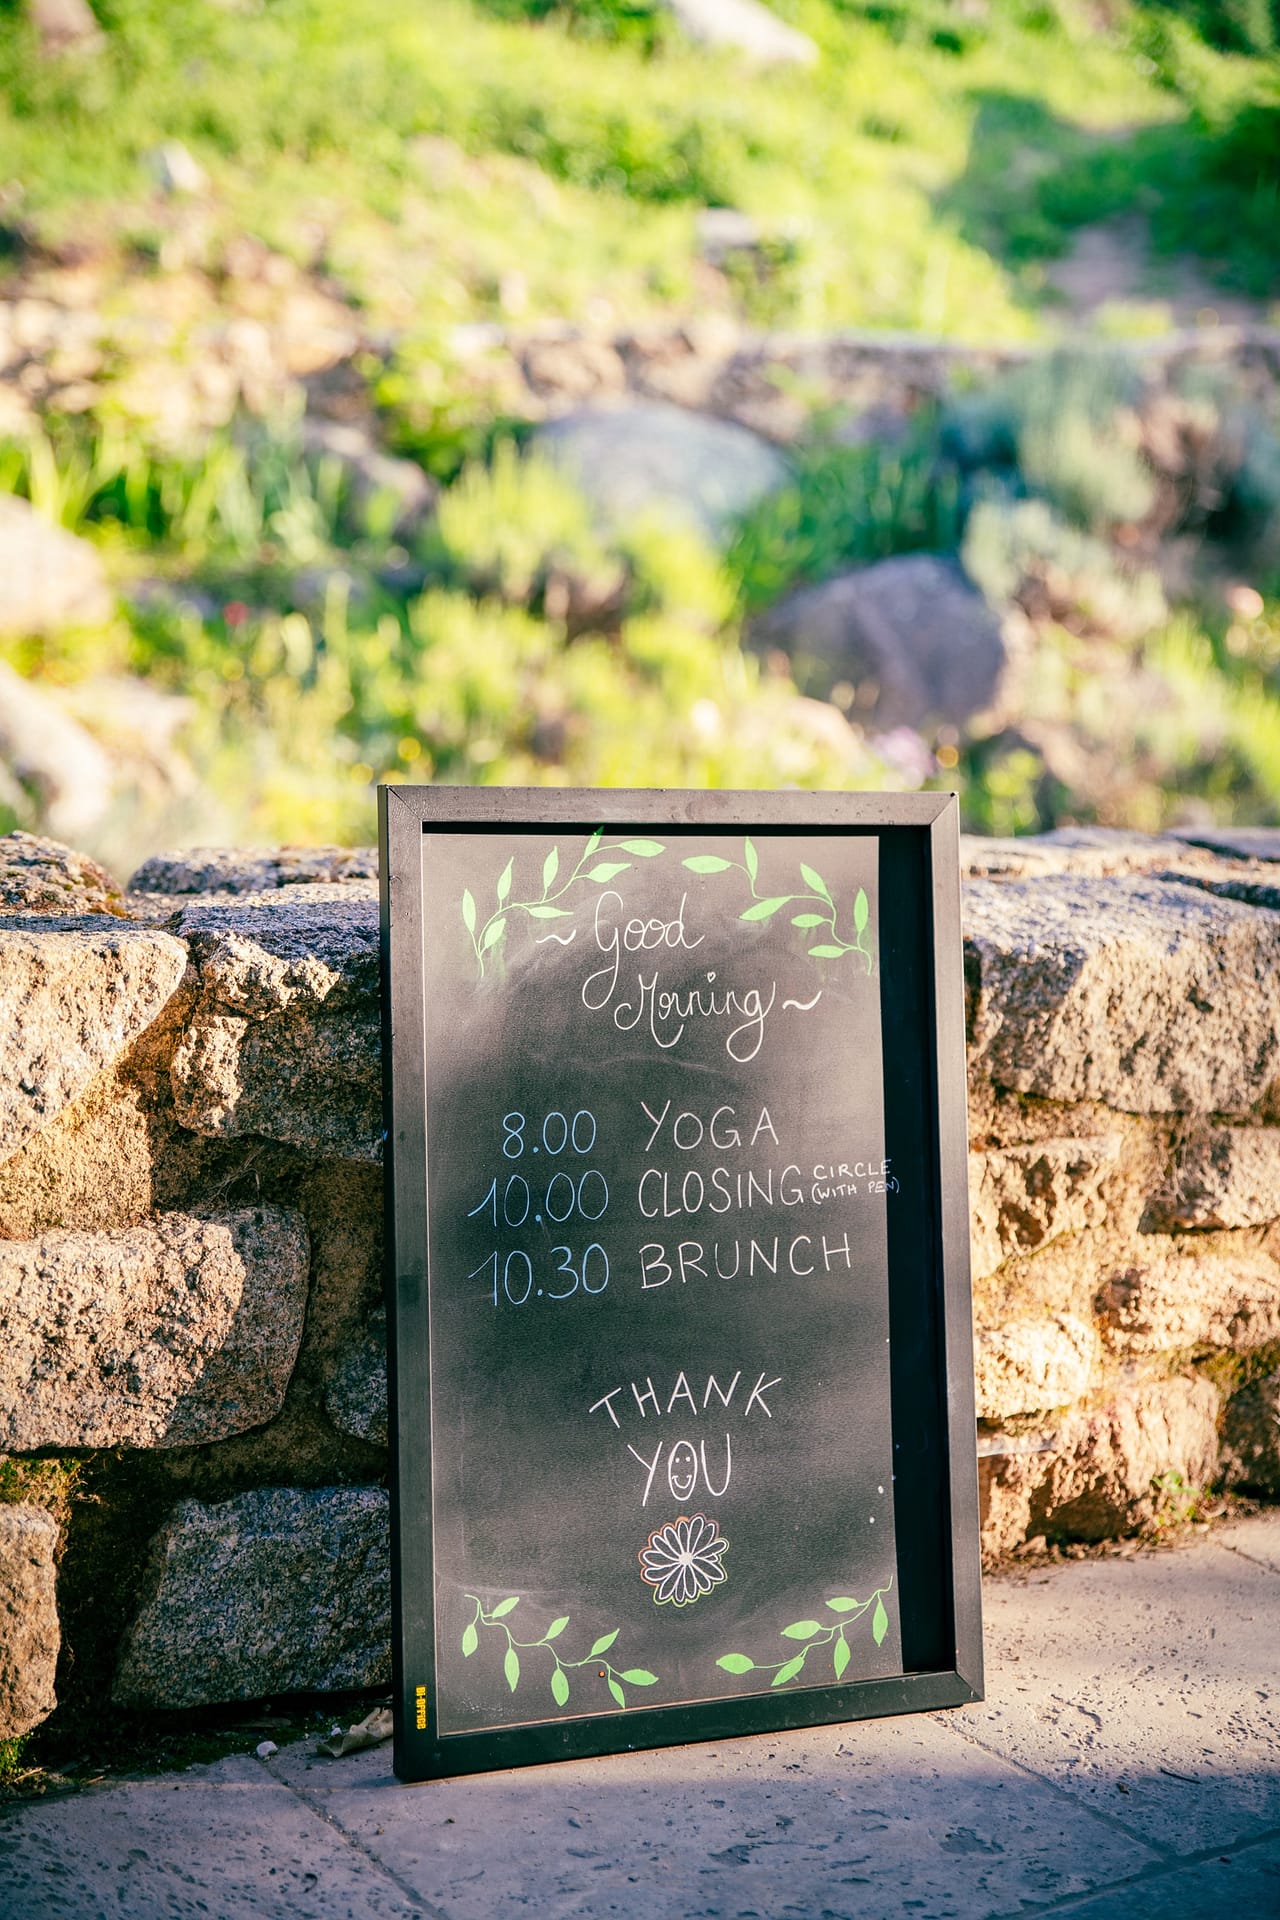 ~ Good
Morning ~
8.00 YOGA
10.00 CLOSING CIRCLE
(WITH PEN)
10.30 BRUNCH
THANK
YOU
BI-OFFICE